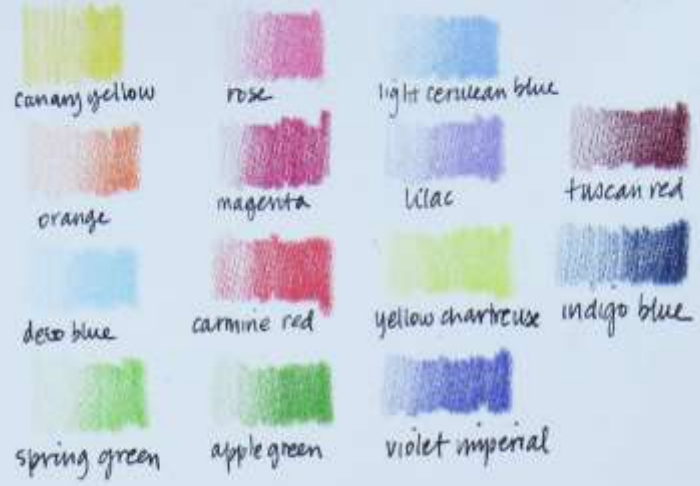 canary yellow
rose
light cerulean blue
orange
magenta
lilac
tuscan red
deco blue
carmine red
yellow chartreuse
indigo blue
spring green
apple green
violet imperial